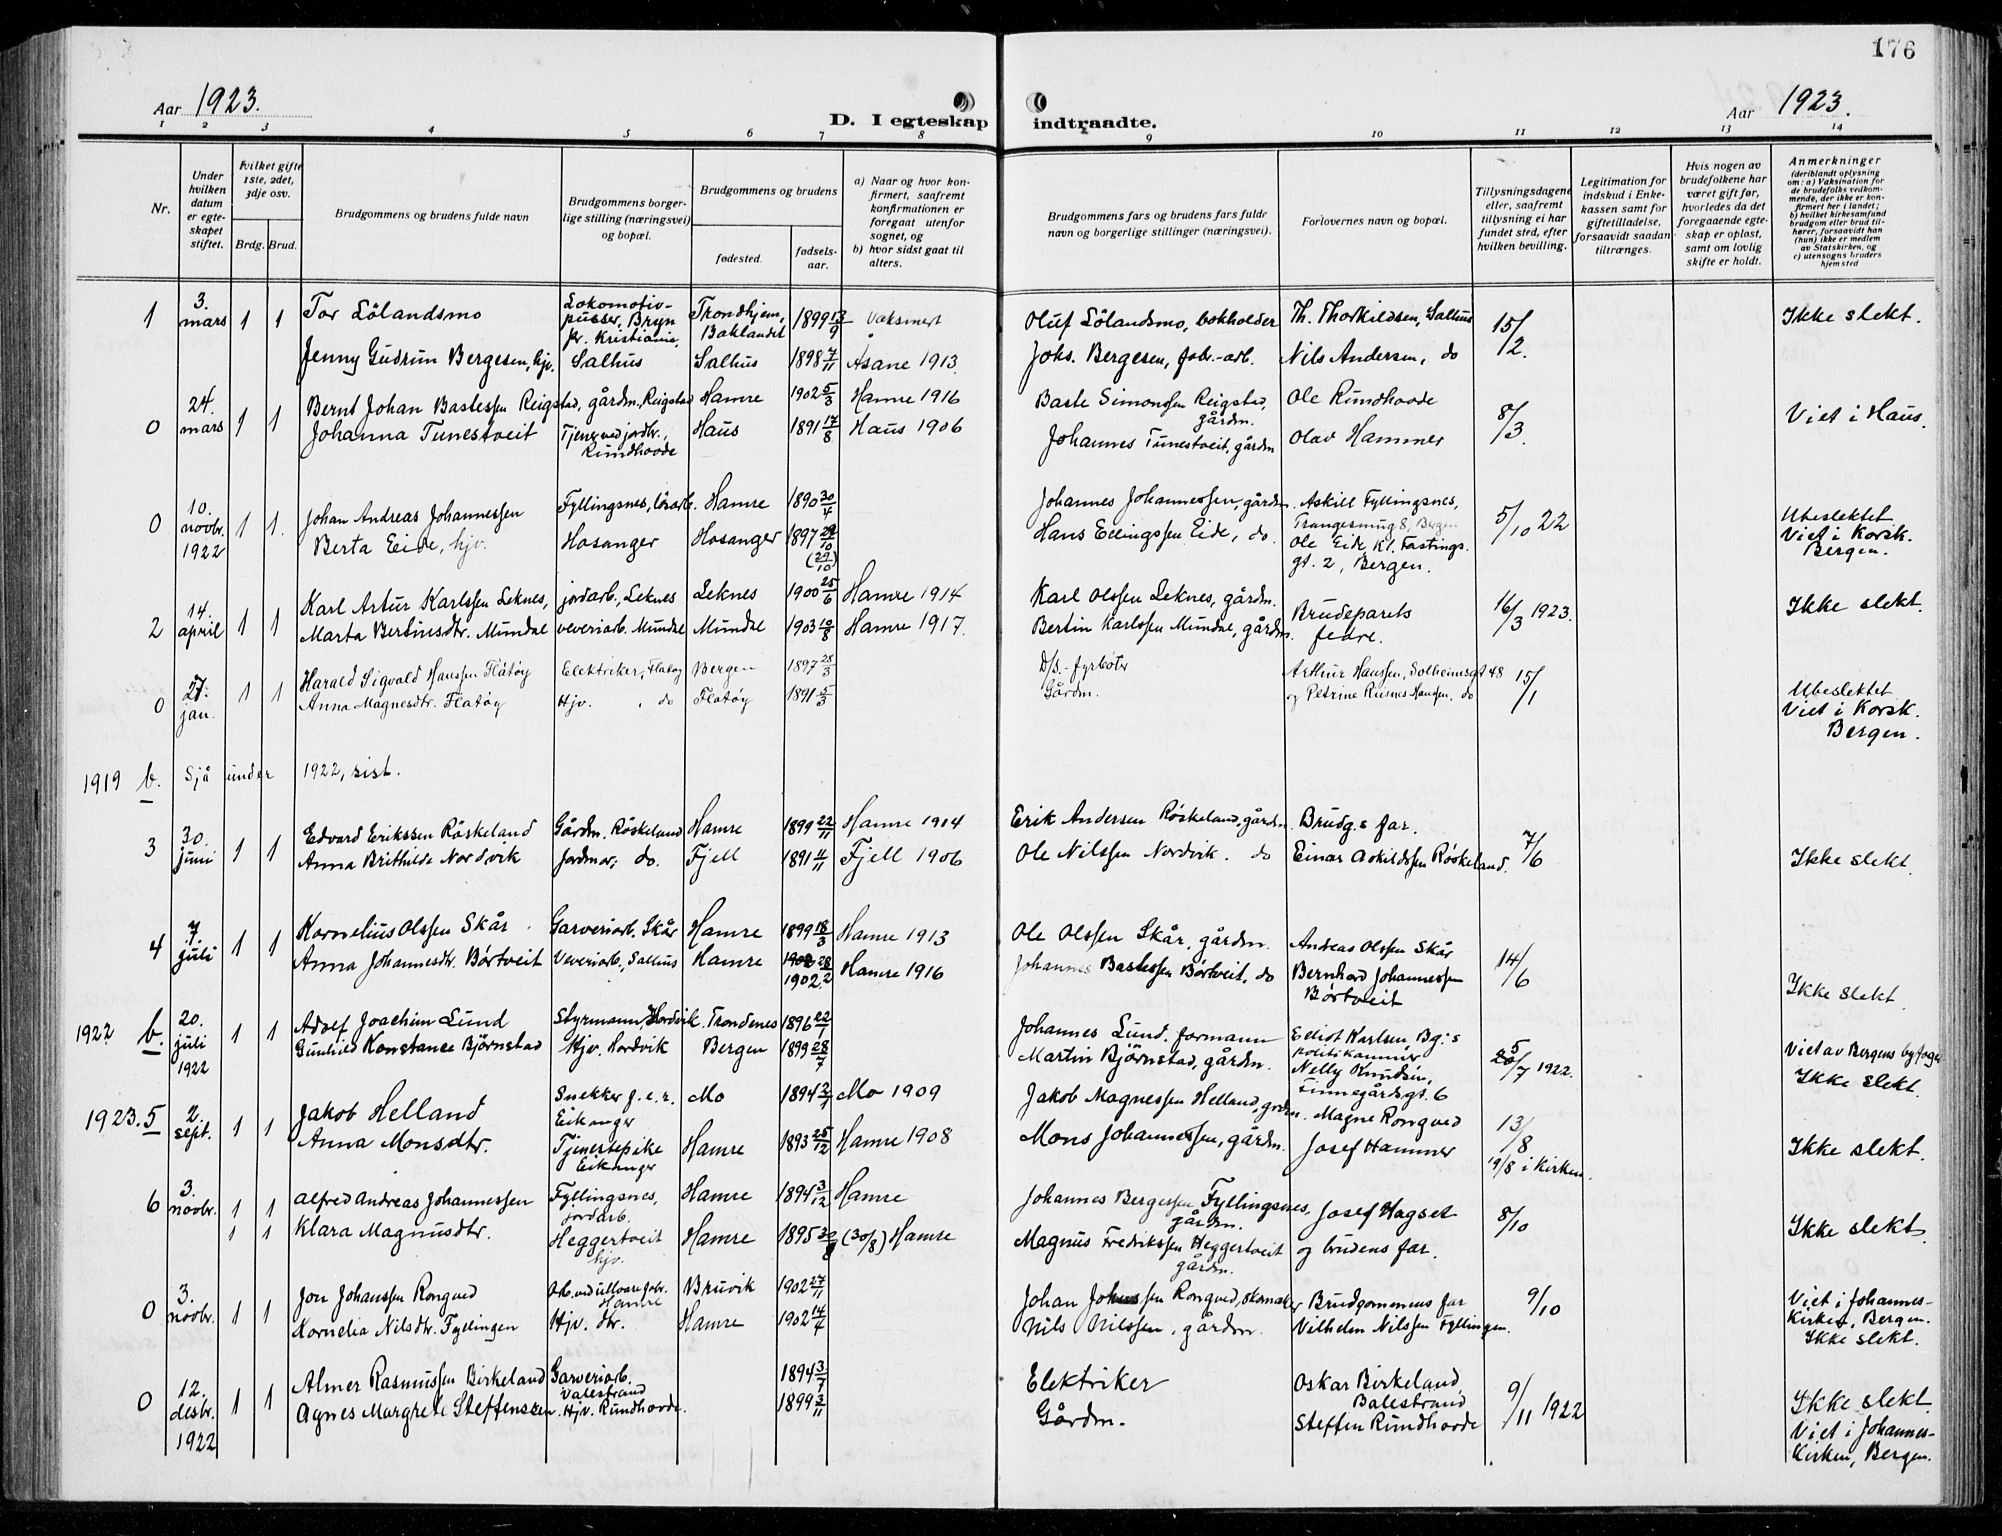 176
Aar 1923.
D. I egteskap indtraadte.
Aar 1923.
1 2 3 4 5 6 7 8 9 10 11 12 13 14
Nr.
Under hvilken datum er egteskapet stiftet.
Hvilket gifte 1ste, 2det, 3dje osv.
Brdg. Brud.
Brudgommens og brudens fulde navn
Brudgommens borgerlige stilling (næringsvei) og bopæl.
Brudgommens og brudens
fødested.
fødselsaar.
a) Naar og hvor konfirmert, saafremt konfirmationen er foregaat utenfor sognet, og
b) hvor sidst gaat til alters.
Brudgommens fars og brudens fars fulde navn og borgerlige stillinger (næringsvei).
Forlovernes navn og bopæl.
Tillysningsdagene eller, saafremt tillysning ei har fundet sted, efter hvilken bevilling.
Legitimation for indskud i Enkekassen samt for giftetilladelse, forsaavidt saadan tiltrænges.
Hvis nogen av brudefolkene har været gift før, hvorledes da det foregaaende egteskap er opløst, samt om lovlig skifte er holdt.
Anmerkninger
(deriblandt oplysning om: a) Vaksination for de brudefolks vedkommende, der ikke er konfirmert her i landet; b) hvilket kirkesamfund brudgom eller brud tilhører, forsaavidt han (hun) ikke er medlem av Statskirken, og c) utensogns bruders hjemsted
1 3. mars 1 1 Tor Lölandsmo Lokomotivpusser, Bryn pr. Kristiania, Trondhjem, Baklandet 1899 13/9 Vaksinert Oluf Lölandsmo, bokholder Th. Thorkildsen, Salhus 15/2. Ikke slekt.
Jenny Gudrun Bergesen, hjv. Salhus Salhus 1898 7/11 Åsane 1913. Johs. Bergesen, fabr.-arb. Nils Andersen, do
0 24. mars 1 1 Bernt Johan Bastessen Reigstad, gårdm. Reigstad Hamre 1902 5/3 Hamre 1916 Baste Simonssen Reigstad, gårdm. Ole Rundhovde 8/3. Viet i Haus.
Johanna Tunestveit Tjener ved jordbr., Rundhovde Haus 1891 17/8 Haus 1906 Johannes Tunestveit, gårdm Olav Hammer
0 10. novbr. 1922 1 1. Johan Andreas Johannessen Fyllingsnes, lösarb. Hamre 1890 30/4 Johannes Johannessen, gårdm. Askill Fyllingsnes, Trangesmug 8, Bergen 5/10 22 Ubeslektet Viet i Korsk. Bergen.
Berta Eide, hjv. Hosanger Hosanger 1897 29/10 (29/10) Hans Ellingssen Eide, do. Ole Eide Kl. Fastings gt. 2, Bergen.
2 14. april 1 1 Karl Artur Karlssen Leknes, jordarb., Leknes Leknes 1900 25/6 Hamre 1914 Karl Olssen Leknes, gårdm. Brudeparets fedre. 16/3 1923. Ikke slekt.
Marta Bertinsdtr. Mundal veveriarb. Mundal Mundal 1903 19/8 Hamre 1917. Bertin Karlssen Mundal, gårdm.
0 27. jan. 1 1 Harald Sigvald Hanssen Flatöy Elektriker, Flatøy Bergen 1897 28/3 D/S.-fyrbøter Arthur Hanssen, Solheimsgt 48 15/1 Ubeslektet Viet i Korsk. Bergen.
Anna Magnesdtr. Flatöy Hjv. do Flatöy 1891 5/3 Gårdm. og Petrine Rusnes Hansen, do
1919 b. Sjå under 1922, sist.
3 30. juni 1 1 Edvard Erikssen Röskeland Gårdm. Röskeland Hamre 1899 22/11 Hamre 1914 Erik Andersen Röskeland, gårdm. Brudg.s far. 7/6 Ikke slekt.
Anna Brithilde Nordvik Jordmor, do. Fjell 1891 4/11 Fjell 1906 Ole Nilssen Nordvik. do Einar Askildssen Röskeland.
4 7. juli 1 1 Kornelius Olssen Skår Garveriarb. Skår Hamre 1899 18/3 Hamre 1913 Ole Olssen Skår, gårdm. Andreas Olssen Skår 14/6 Ikke slekt.
Anna Johannesdtr. Börtveit Veveriarb., Salhus Hamre 1902 28/2 1902. Hamre 1916 Johannes Bastessen Börtveit, do Bernhard Johannessen Börtveit
1922 b. 20. juli 1922 1 1 Adolf Joachim Lund Styrmann, Hordvik. Trondenes 1896 22/1 Johannes Lund. formann Elliot Karlsen, Bg:s politikammer 5/7 1922. Viet av Bergens byfoged Ikke slekt.
Gunhild Konstanse Björnstad Hjv. Hordvik Bergen 1899 28/7 Martin Björnstad, gårdm. Nelly Knudsen, Finnegårdsgt. 6
1923. 5 2. sept. 1 1 Jakob Helland Snekker f.e.r. Eikanger Mo 1894 2/1 Mo 1909 Jakob Magnessen Helland, gårdm. Magne Rongved 13/8 19/8 i Kirken. Ikke slekt.
Anna Monsdtr. Tjenestepike Eikanger Hamre 1893 25/12 Hamre 1908 Mons Johannessen, gårdm. Josef Hammer
6 3. novbr. 1 1 Alfred Andreas Johannessen Fyllingsnes, jordarb. Hamre 1894 3/12 Hamre Johannes Bergessen Fyllingsnes, gårdm. Josef Hagset 8/10 Ikke slekt.
1 1 Klara Magnusdtr. Heggertveit hjv. Hamre 1895 30/8 (30/8) Hamre Magnus Fredrikssen Heggertveit gårdm. og brudens far.
0 3. novbr. 1 1 Jon Johanssen Rongved Arb. ved ullvarefabr. Hamre Bruvik 1902 27/11 Johan Johnssen Rongved, skomaker Brudgommens far 9/10 Viet i Johanneskirken, Bergen. Ikke slekt.
Kornelia Nilsdtr. Fyllingen Hjv. dtr. Hamre 1902 14/4 Nils Nilssen, gårdm. Vilhelm Nilssen Fyllingen.
0 12. desbr. 1922 1 1 Almer Rasmussen Birkeland Garveriarb. Valestrand 1894 3/7 Elektriker Oskar Birkeland, Balestrand 9/11 1922 Ikke slekt. Viet i Johanneskirken, Bergen.
Agnes Margrete Steffenssen. Hjv. Rundhovde. 1899 3/11 Gårdm. Steffen Rundhovde